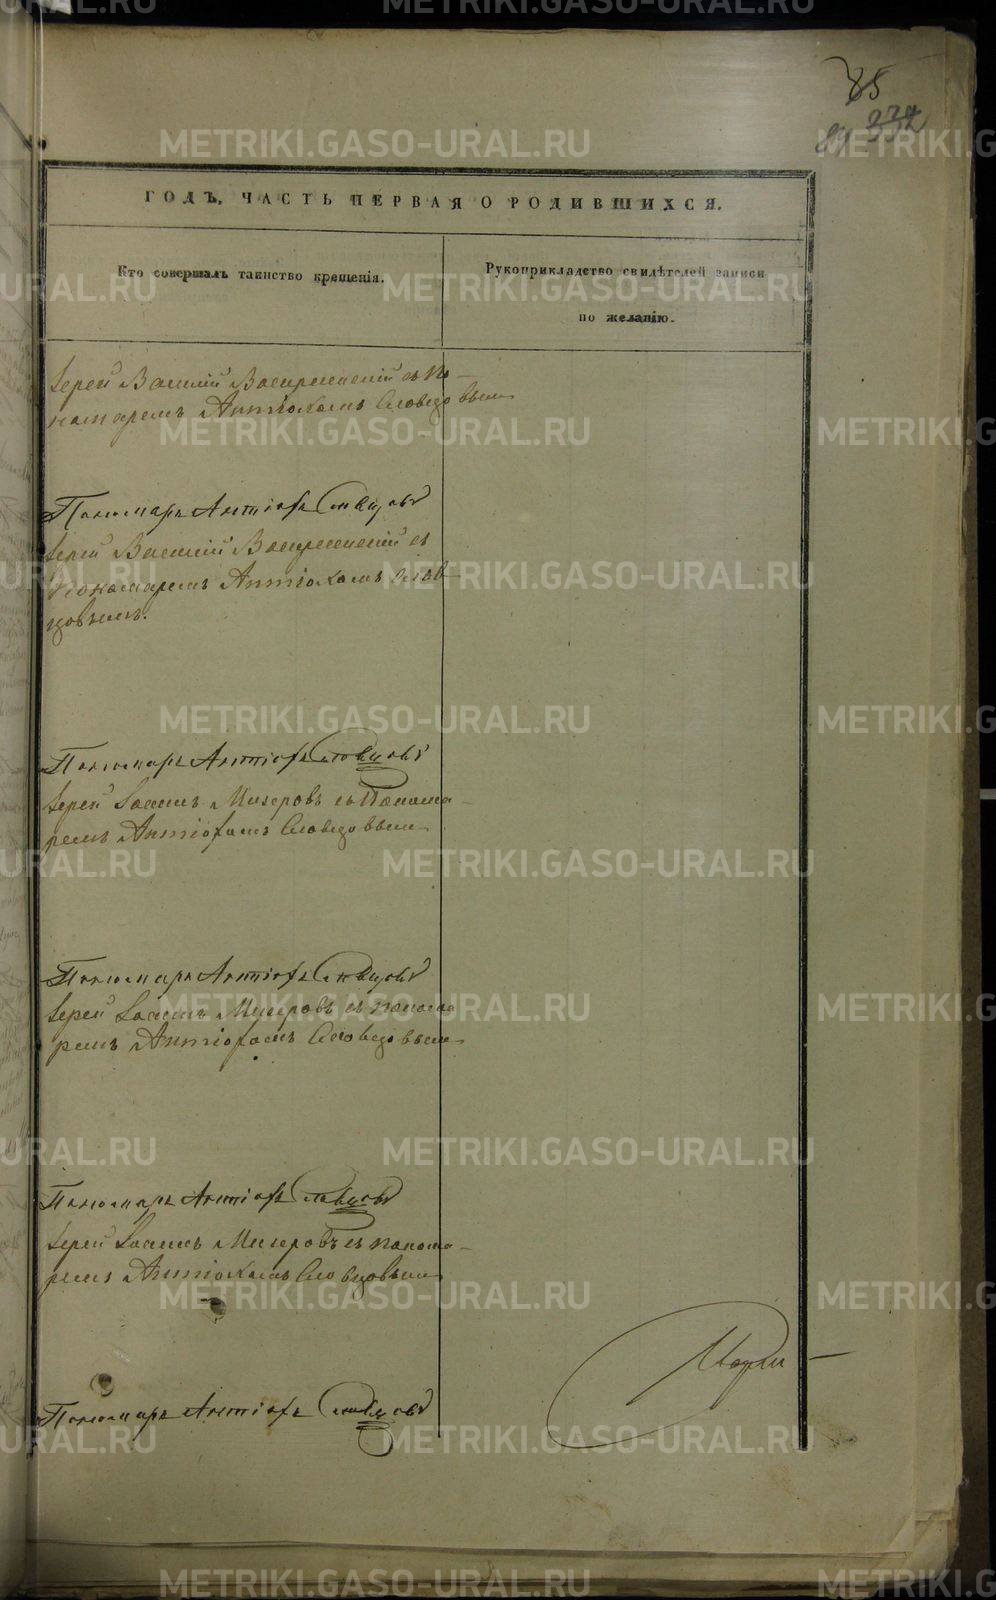 85
332
ГОДЪ, ЧАСТЬ ПЕРВАЯ О РОДИВШИХСЯ.
Кто совершалъ таинство крещенія.
Рукоприкладство свидѣтелей записи
по желанію.
Іерей Василій Воскресенскій съ по-
номаремъ Антіохомъ Словцовымъ
Пономарь Антіохъ Словцовъ
Іерей Василій Воскресенскій съ
Пономаремъ Антіохомъ Слов-
цовымъ.
Пономарь Антіохъ Словцовъ
Іерей Іоаннъ Мизеровъ съ Понома-
ремъ Антіохомъ Словцовымъ
Пономарь Антіохъ Словцовъ
Іерей Іоаннъ Мизеровъ съ понома
ремъ Антіохомъ Словцовымъ
Пономарь Антіохъ Словцовъ
Іерей Іоаннъ Мизеровъ съ понома-
ремъ Антіохомъ Словцовымъ
Пономарь Антіохъ Словцовъ
METRIKI.GASO-URAL.RU